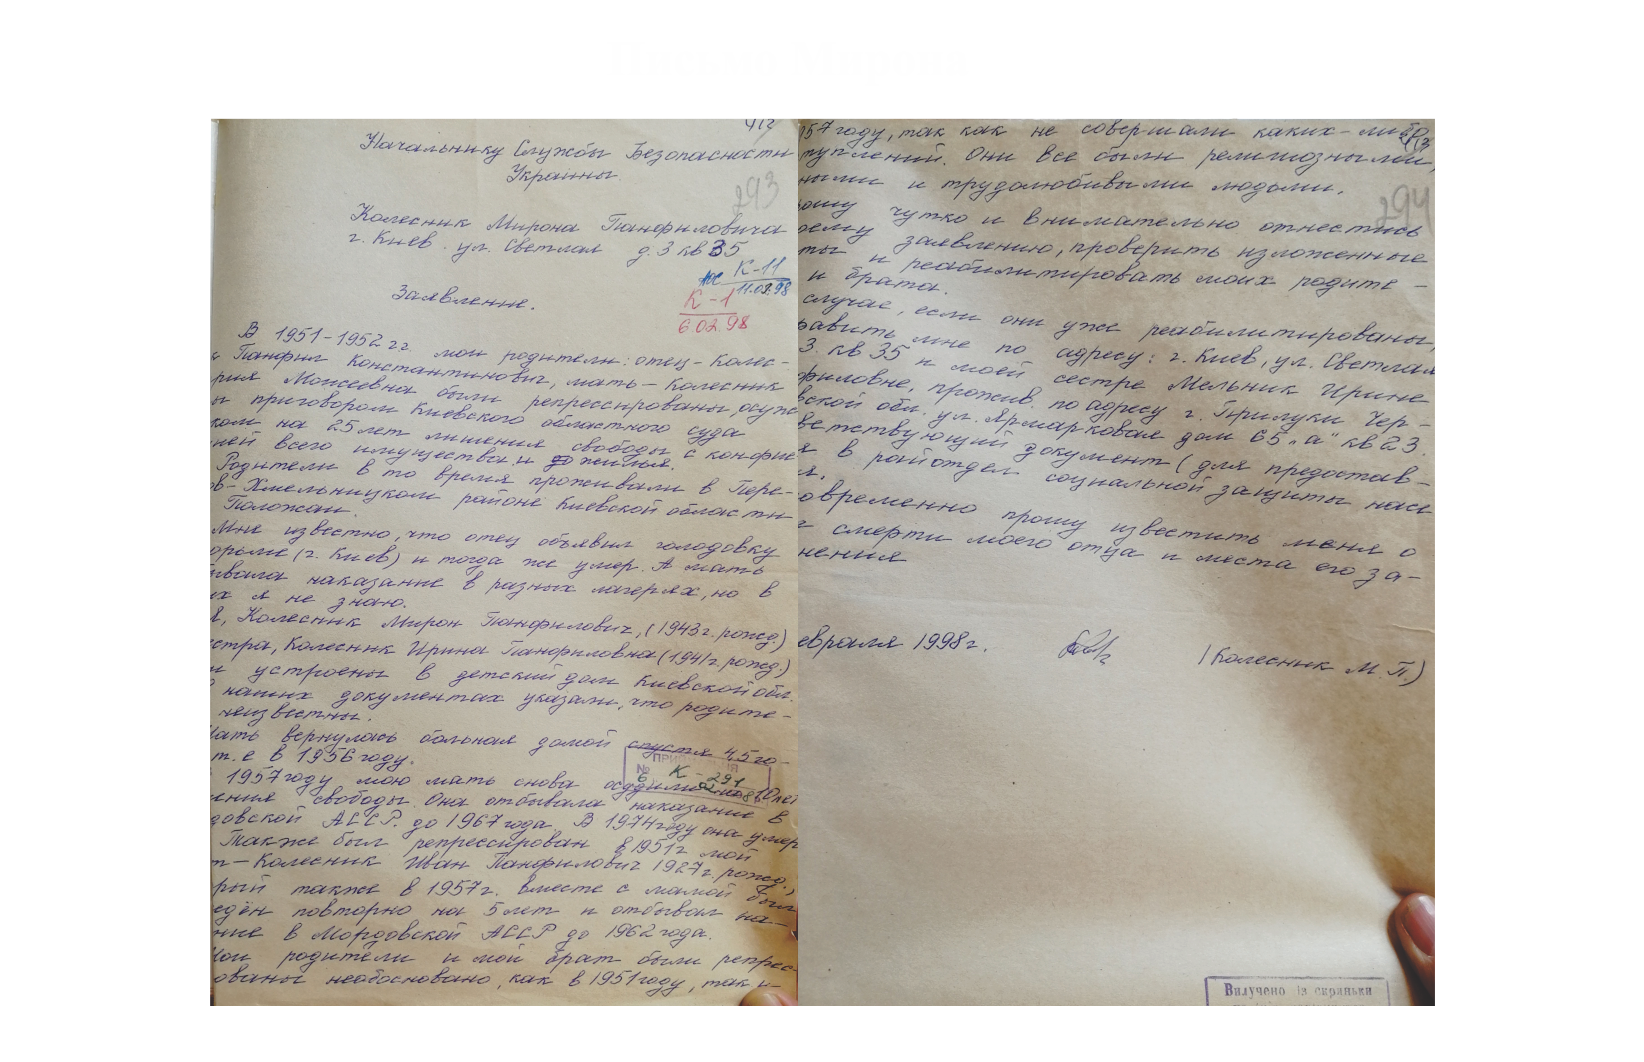 412
Начальнику Службы Безопасности
Украины
293
Колесник Мирона Панфиловича
г. Киев ул. Светлая д. 3 кв 35
К-11
11.02.98
К-1
6.02.98
Заявление.
В 1951-1952 гг. мои родители: отец - Колес-
Панфил Константинович, мать - Колесник
рия Моисеевна были репрессированы, осуж
ы приговором Киевского областного суда
ком на 25 лет лишения свободы с конфис
ией всего имущества и жилья.
Родители в то время проживали в Пере-
в-Хмельницком районе Киевской области
Положаи.
Мне известно, что отец объявил голодовку
юрьме (г. Киев) и тогда же умер. А мать
ывала наказание в разных лагерях, но в
их я не знаю.
Я, Колесник Мирон Панфилович, (1943 г. рожд.)
естра, Колесник Ирина Панфиловна (1941 г. рожд.)
и устроены в детский дом Киевской обл.
наших документах указали, что родите-
неизвестны.
Мать вернулась больная домой спустя 4,5 го-
т.е в 1956 году.
№ К-291
1957 году мою мать снова осудили на 10 лет
ения свободы. Она отбывала наказание в
довской АССР. до 1967 года. В 1974 году она умер
Также был репрессирован в 1951 г мой
т - Колесник Иван Панфилович 1927 г. рожд.,
рый также в 1957 г. вместе с мамой был
едён повторно на 5 лет и отбывал на-
ние в Мордовской АССР до 1962 года.
Мои родители и мой брат были репрес-
ованы необосновано, как в 1951 году, так и
957 году, так как не совершали каких-либо
туплений. Они все были религиозными,
ными и трудолюбивыми людьми.
294
рошу чутко и внимательно отнестись
оему заявлению, проверить изложенные
ты и реабилитировать моих родите-
и брата.
случае, если они уже реабилитированы,
равить мне по адресу: г. Киев, ул. Светлая
3 кв 35 и моей сестре Мельник Ирине
филовне, прожив. по адресу г. Прилуки Чер-
вской обл. ул. Ярмарковая дом 65 „а" кв 23.
ветствующий документ (для предостав-
я в райотдел социальной защиты насе
я.
овременно прошу известить меня о
г смерти моего отца и места его за-
нения
евраля 1998 г. (Колесник М. П.)
Вилучено із скриньки